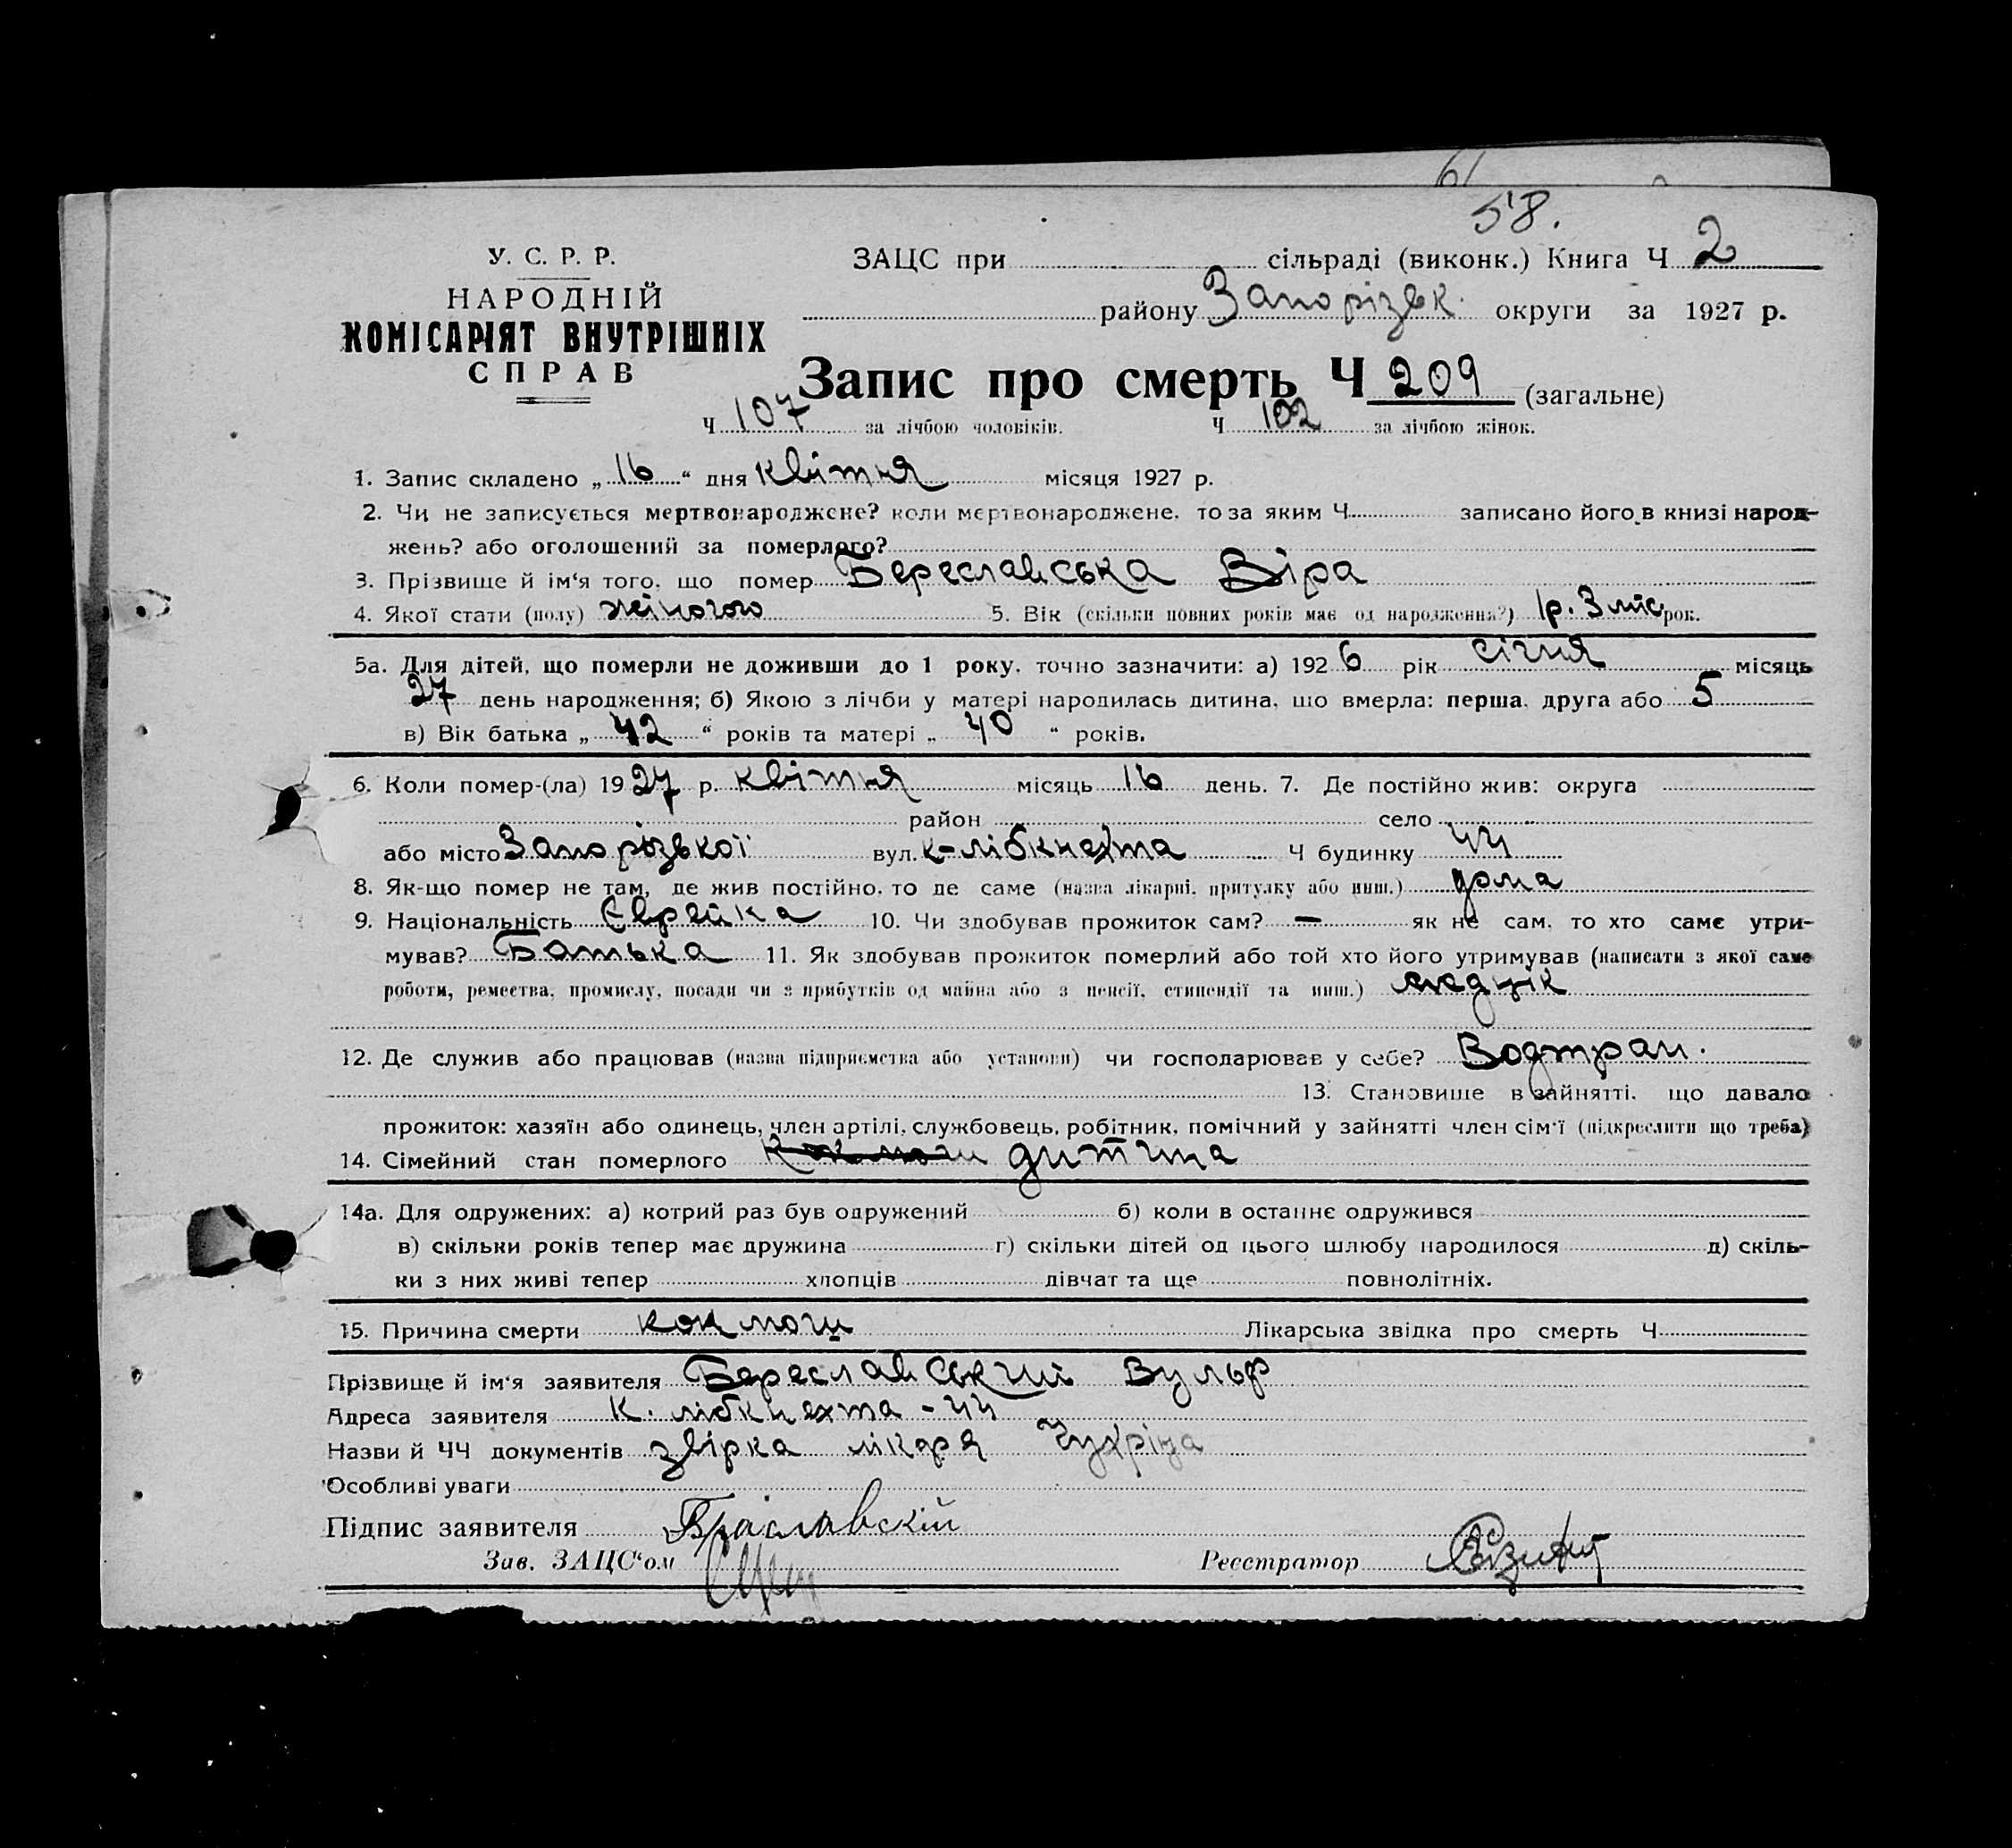 61
58.
У. С. Р. Р.
НАРОДНІЙ
КОМІСАРІЯТ ВНУТРІШНІХ
СПРАВ
ЗАЦС при сільраді (виконк.) Книга Ч 2
району Запорізьк. округи за 1927 р.
Запис про смерть Ч 209 (загальне)
Ч 107 за лічбою чоловіків. Ч 102 за лічбою жінок.
1. Запис складено „ 16 “ дня квітня місяця 1927 р.
2. Чи не записується мертвонароджене? коли мертвонароджене, то за яким Ч записано його в книзі народ-
жень? або оголошений за померлого?
3. Прізвище й ім‘я того, що помер Береславська Віра
4. Якої стати (полу) жіночого 5. Вік (скільки повних років має од народження?) 1р. 3 міс рок.
5а. Для дітей, що померли не доживши до 1 року, точно зазначити: а) 192 6 рік січня місяць
27 день народження; б) Якою з лічби у матері народилась дитина, що вмерла: перша, друга або 5
в) Вік батька „ 42 “ років та матері „ 40 “ років.
6. Коли помер-(ла) 19 27 р. квітня місяць 16 день. 7. Де постійно жив: округа
район село
або місто Запорізької вул. К-лібкнехта Ч будинку 44
8. Як-що помер не там, де жив постійно, то де саме (назва лікарні, притулку або инш.) дома
9. Національність Єврейка 10. Чи здобував прожиток сам? — як не сам, то хто саме утри-
мував? Батька 11. Як здобував прожиток померлий або той хто його утримував (написати з якої саме
роботи, ремества, промислу, посади чи з прибутків од майна або з пенсії, стипендії та инш.)
12. Де служив або працював (назва підприємства або установи) чи господарював у себе? Водтран.
13. Становище в зайнятті, що давало
прожиток: хазяїн або одинець, член артілі, службовець, робітник, помічний у зайнятті член сім‘ї (підкреслити що треба)
14. Сімейний стан померлого дитина
14а. Для одружених: а) котрий раз був одружений б) коли в останнє одружився
в) скільки років тепер має дружина г) скільки дітей од цього шлюбу народилося д) скіль-
ки з них живі тепер хлопців дівчат та ще повнолітніх.
15. Причина смерти Лікарська звідка про смерть Ч
Прізвище й ім‘я заявителя Береславський Вульф
Адреса заявителя К. лібкнехта - 44
Назви й ЧЧ документів звірка лікаря
Особливі уваги
Підпис заявителя Браславскій
Зав. ЗАЦС‘ом Реєстратор